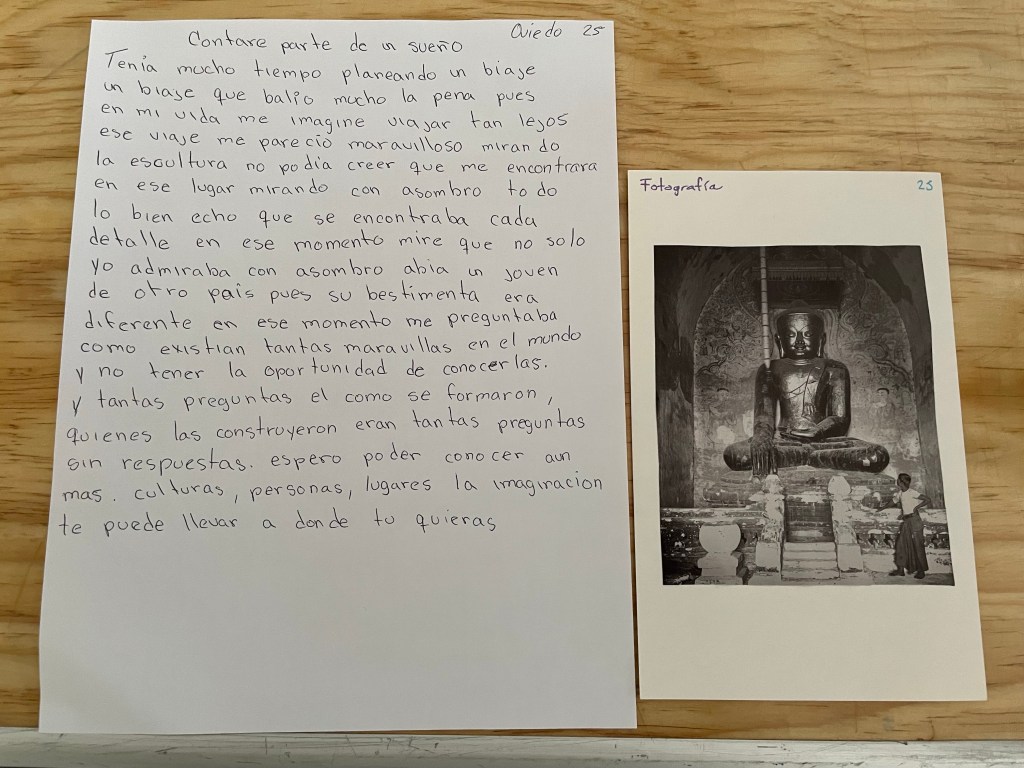 Oviedo 25
Contare parte de un sueño
Tenía mucho tiempo planeando un biaje
un biaje que balio mucho la pena pues
en mi vida me imagine viajar tan lejos
ese viaje me pareció maravilloso mirando
la escultura no podía creer que me encontrara
en ese lugar mirando con asombro todo
lo bien echo que se encontraba cada
detalle en ese momento mire que no solo
yo admiraba con asombro abia un joven
de otro país pues su bestimenta era
diferente en ese momento me preguntaba
como existian tantas maravillas en el mundo
y no tener la oportunidad de conocerlas.
y tantas preguntas el como se formaron,
quienes las construyeron eran tantas preguntas
sin respuestas. espero poder conocer aun
mas. culturas, personas, lugares la imaginacion
te puede llevar a donde tu quieras
Fotografía 25